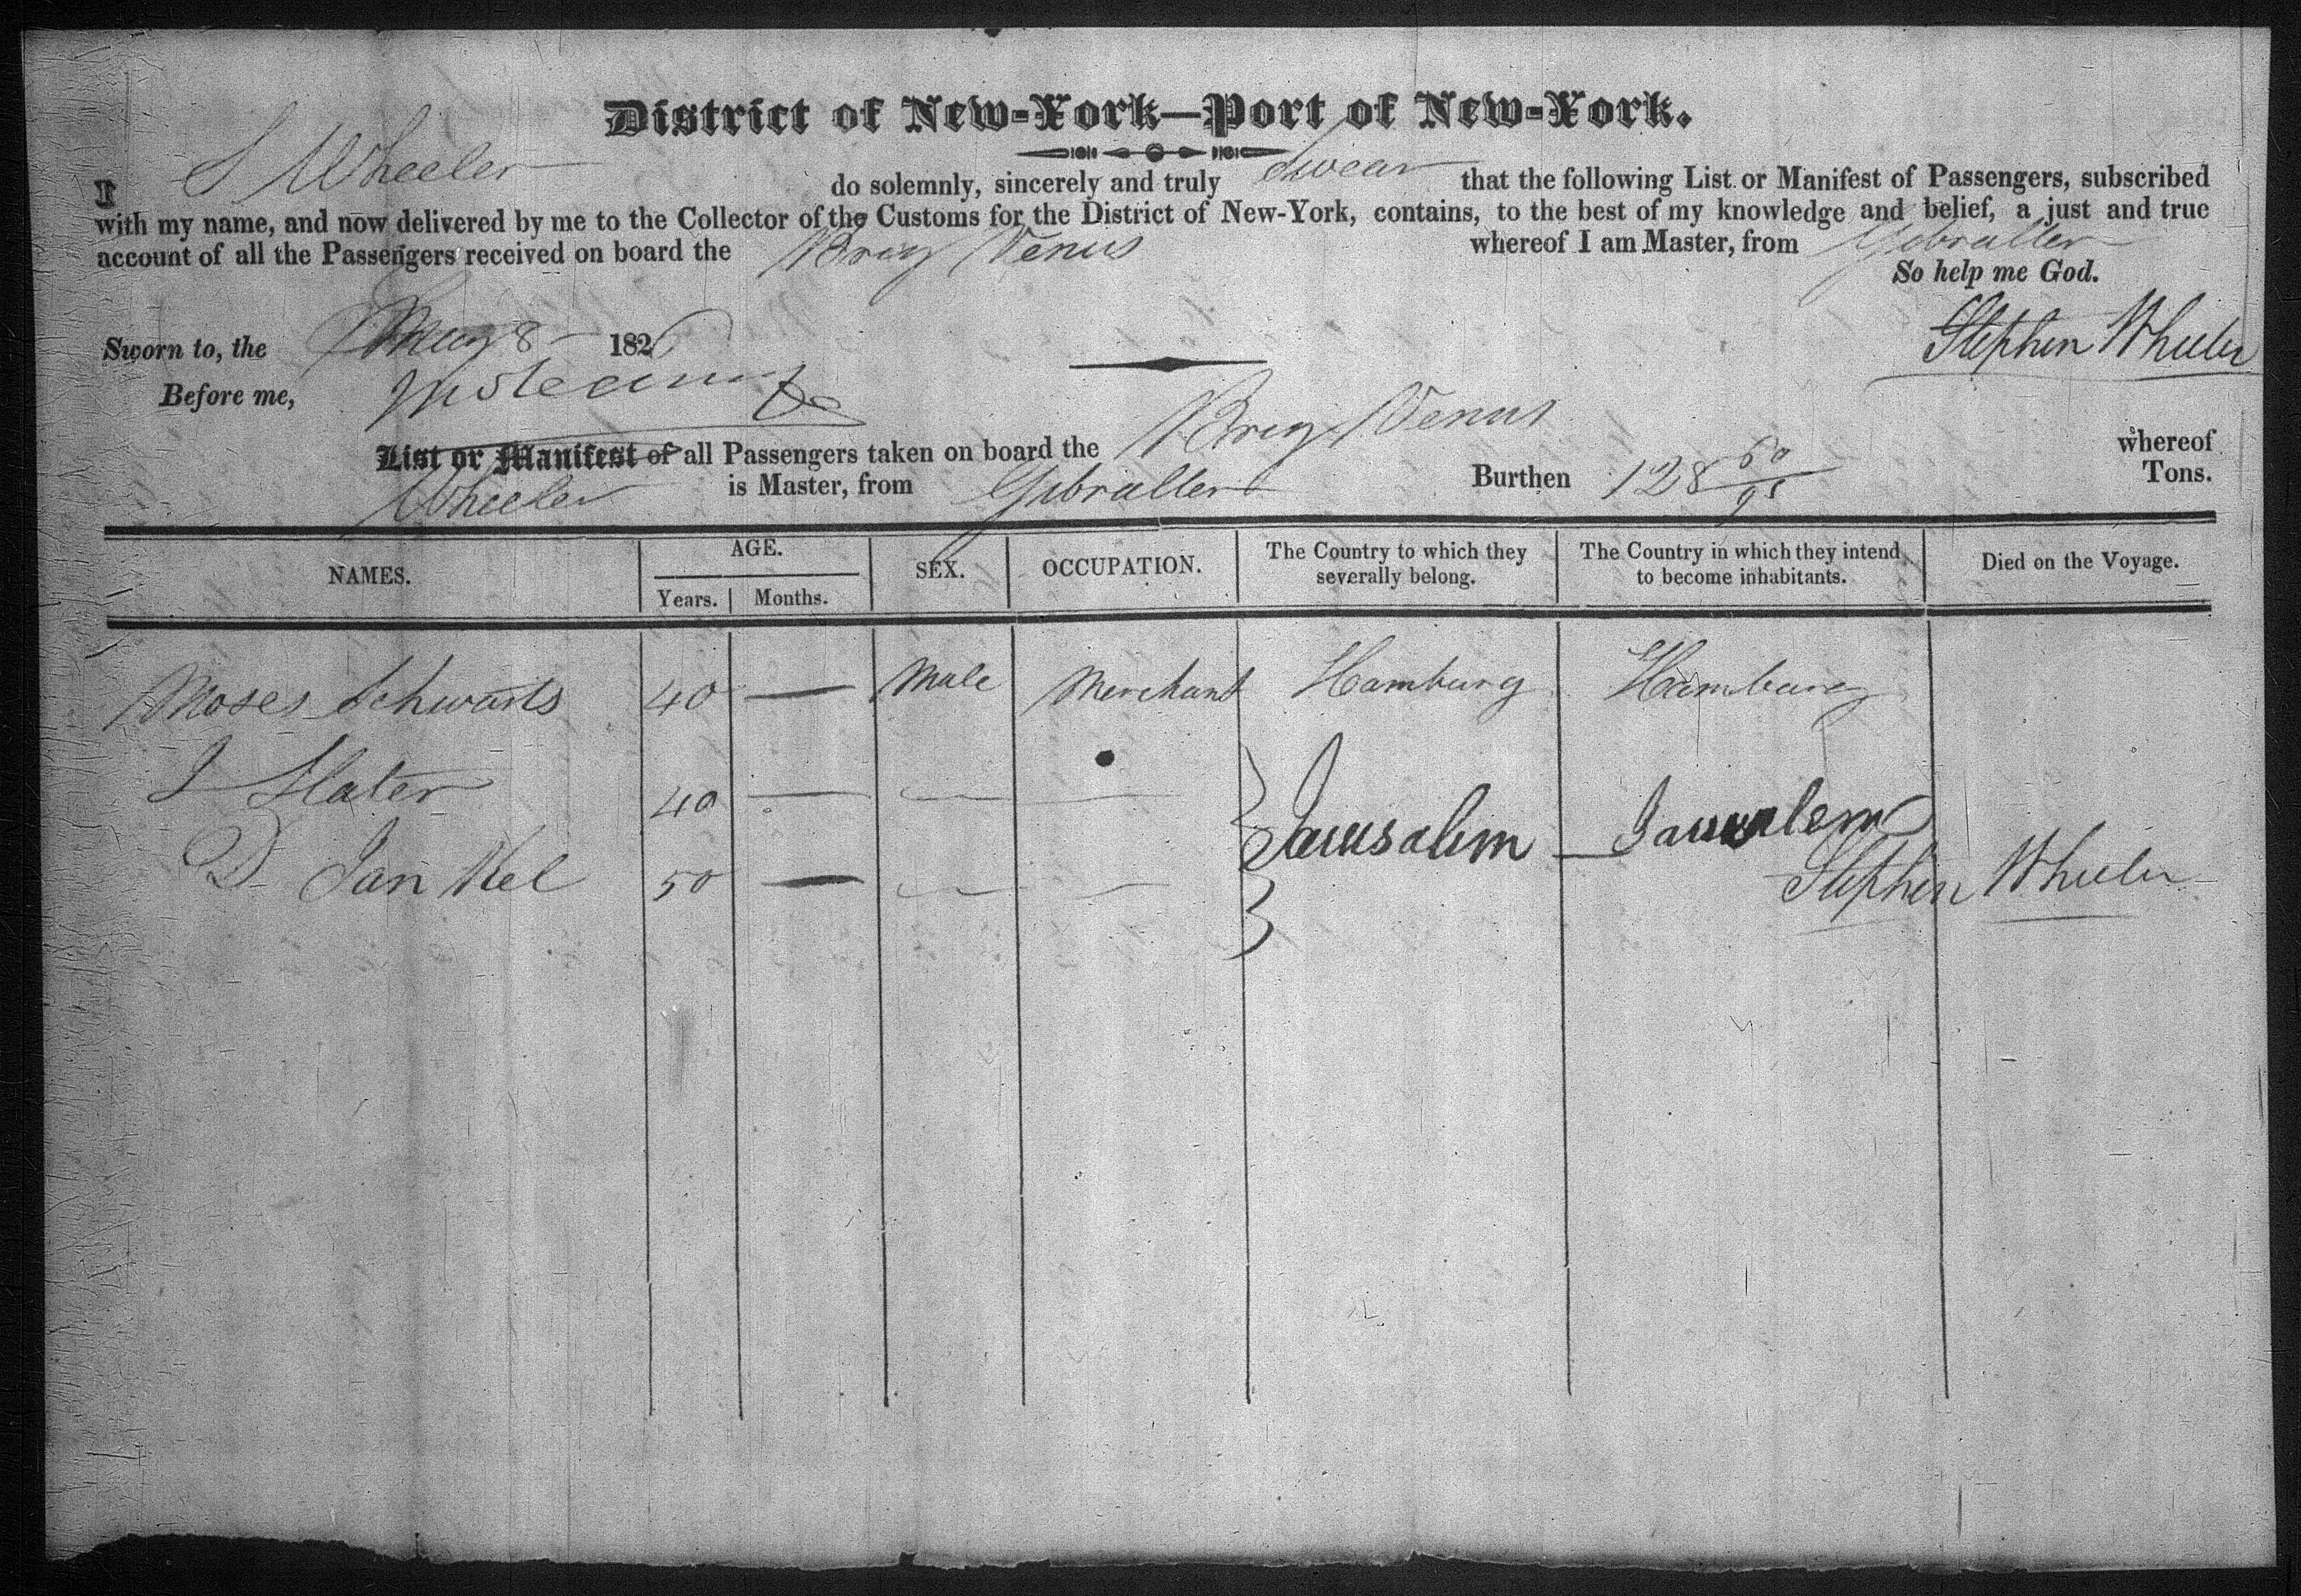 District of New-York—Port of New-York.
I S Wheeler do solemnly, sincerely and truly swear that the following List or Manifest of Passengers, subscribed
with my name, and now delivered by me to the Collector of the Customs for the District of New-York, contains, to the best of my knowledge and belief, a just and true
account of all the Passengers received on board the Brig Venus whereof I am Master, from Gibralter
So help me God.
Sworn to, the May 8 1826
Stephen Wheeler
Before me,
List or Manifest of all Passengers taken on board the Brig Venus whereof
Wheeler is Master, from Gibralter Burthen 128 60/95 Tons.
NAMES. AGE. Years. Months. SEX. OCCUPATION. The Country to which they severally belong. The Country in which they intend to become inhabitants. Died on the Voyage.
Moses Schwarts 40 — Male Merchant Hamburg Hamburg
J Slater 40 — — —
} Jarusalem — Jarusalem
D. Jan Kel 50 — — —
Stephen Wheeler